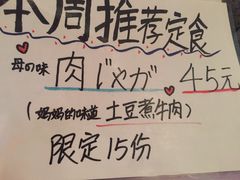 本周推荐定食
母の味 肉じゃが 45元
(妈妈的味道 土豆煮牛肉)
限定15份